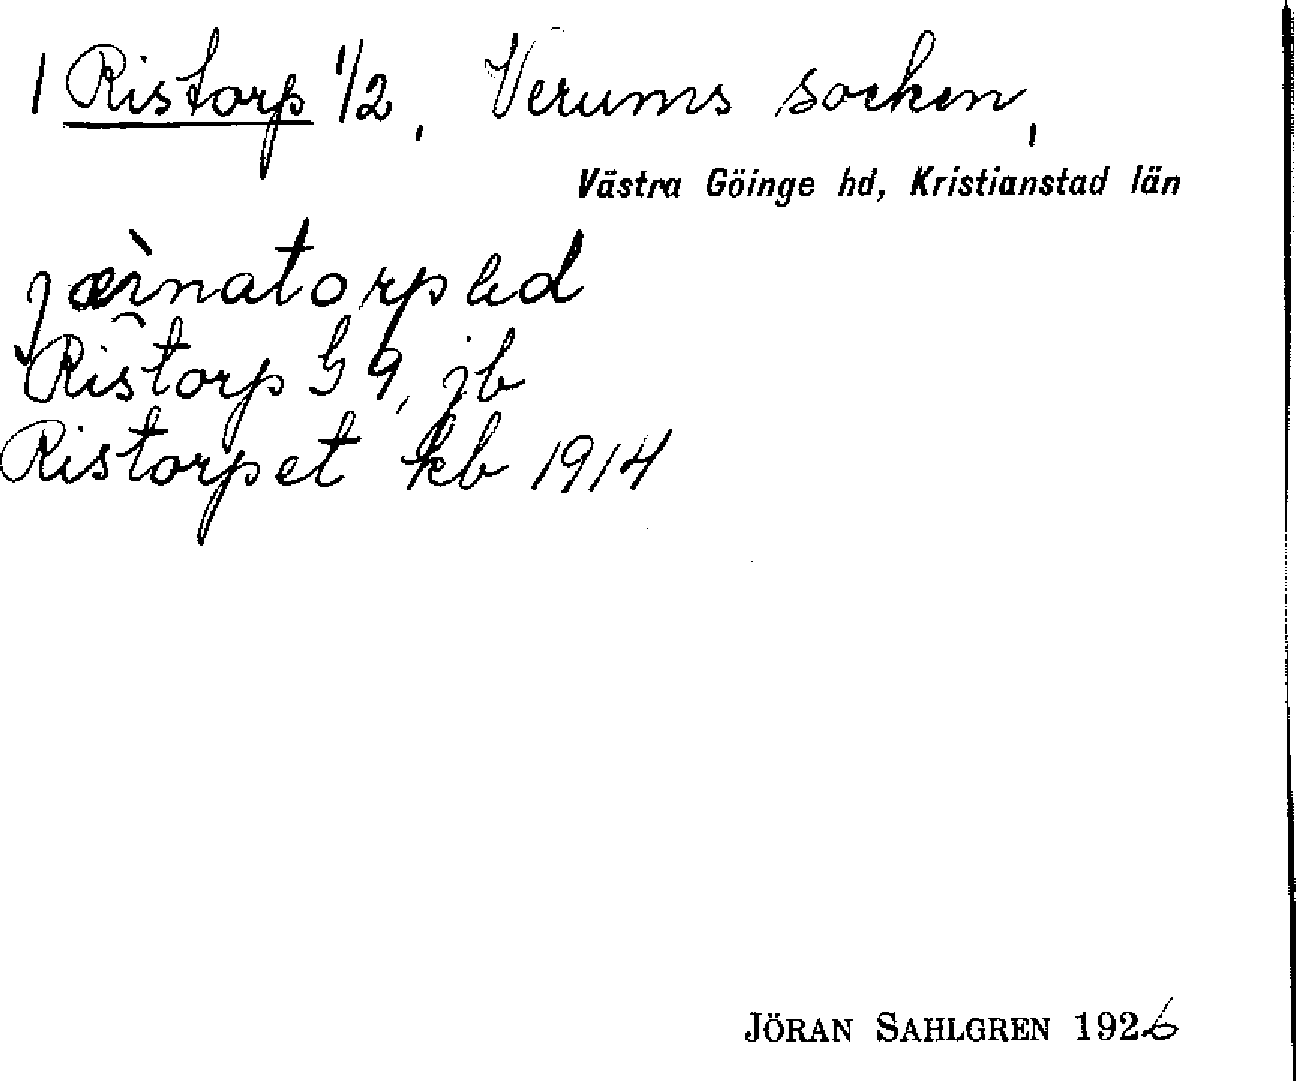 1 Ristorp 1/2, Verums socken,
Västra Göinge hd, Kristianstad län
Ristorp G 9, jb
Ristorpet kb 1914
JÖRAN SAHLGREN 1926